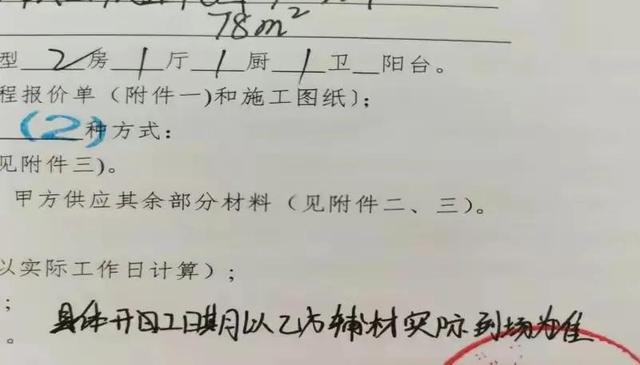 78m²
型 2 房 1 厅 1 厨 1 卫 阳台。
程报价单（附件一)和施工图纸）;
(2) 种方式：
见附件三)。
甲方供应其余部分材料（见附件二、三）。
以实际工作日计算）;
;
。
具体开工日期以乙方辅材实际到场为准